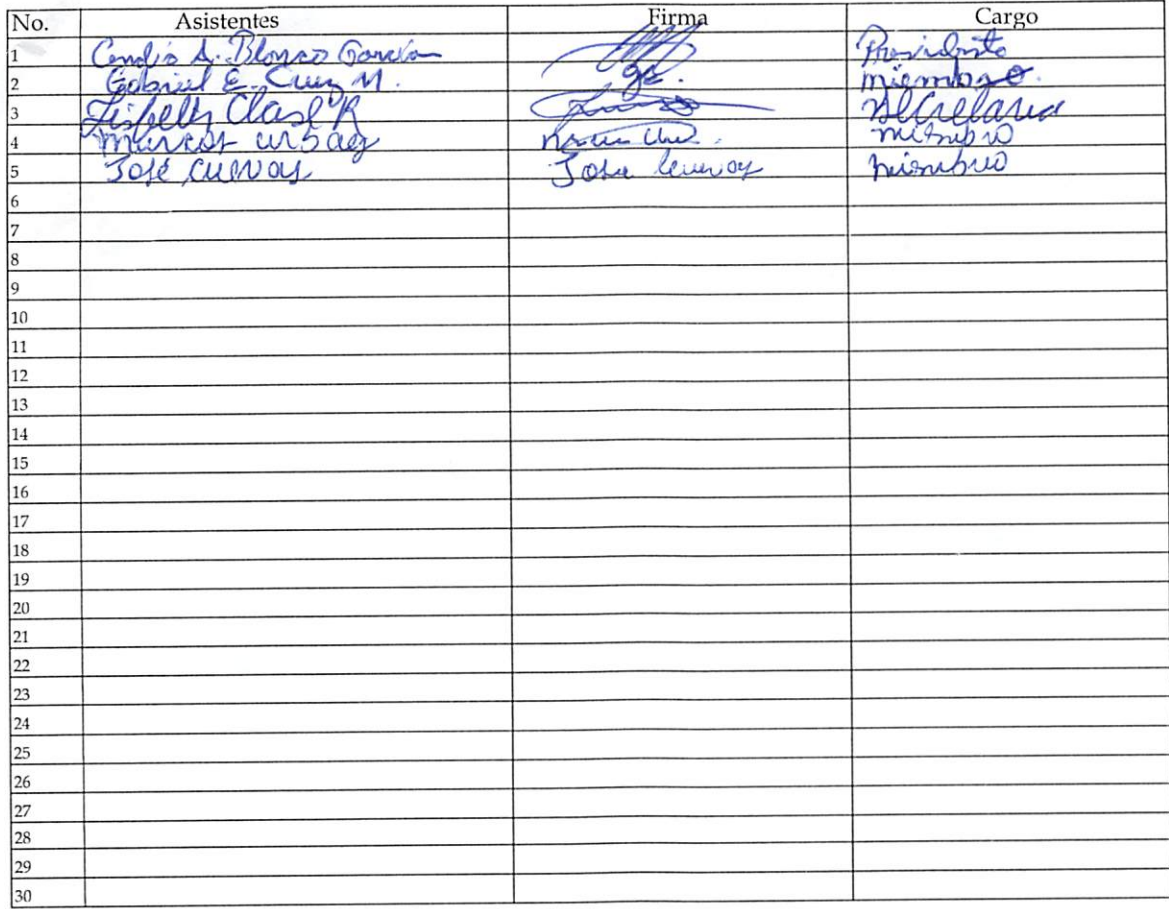 No. Asistentes Firma Cargo
1 A. Blanco García Presidente
2 Gabriel E. Cruz M. G.E. miembro.
3 Lisbeth Clase R Secretaria
4 marcos urbaez miembro
5 José cuevas Jose Cuevas miembro
6
7
8
9
10
11
12
13
14
15
16
17
18
19
20
21
22
23
24
25
26
27
28
29
30